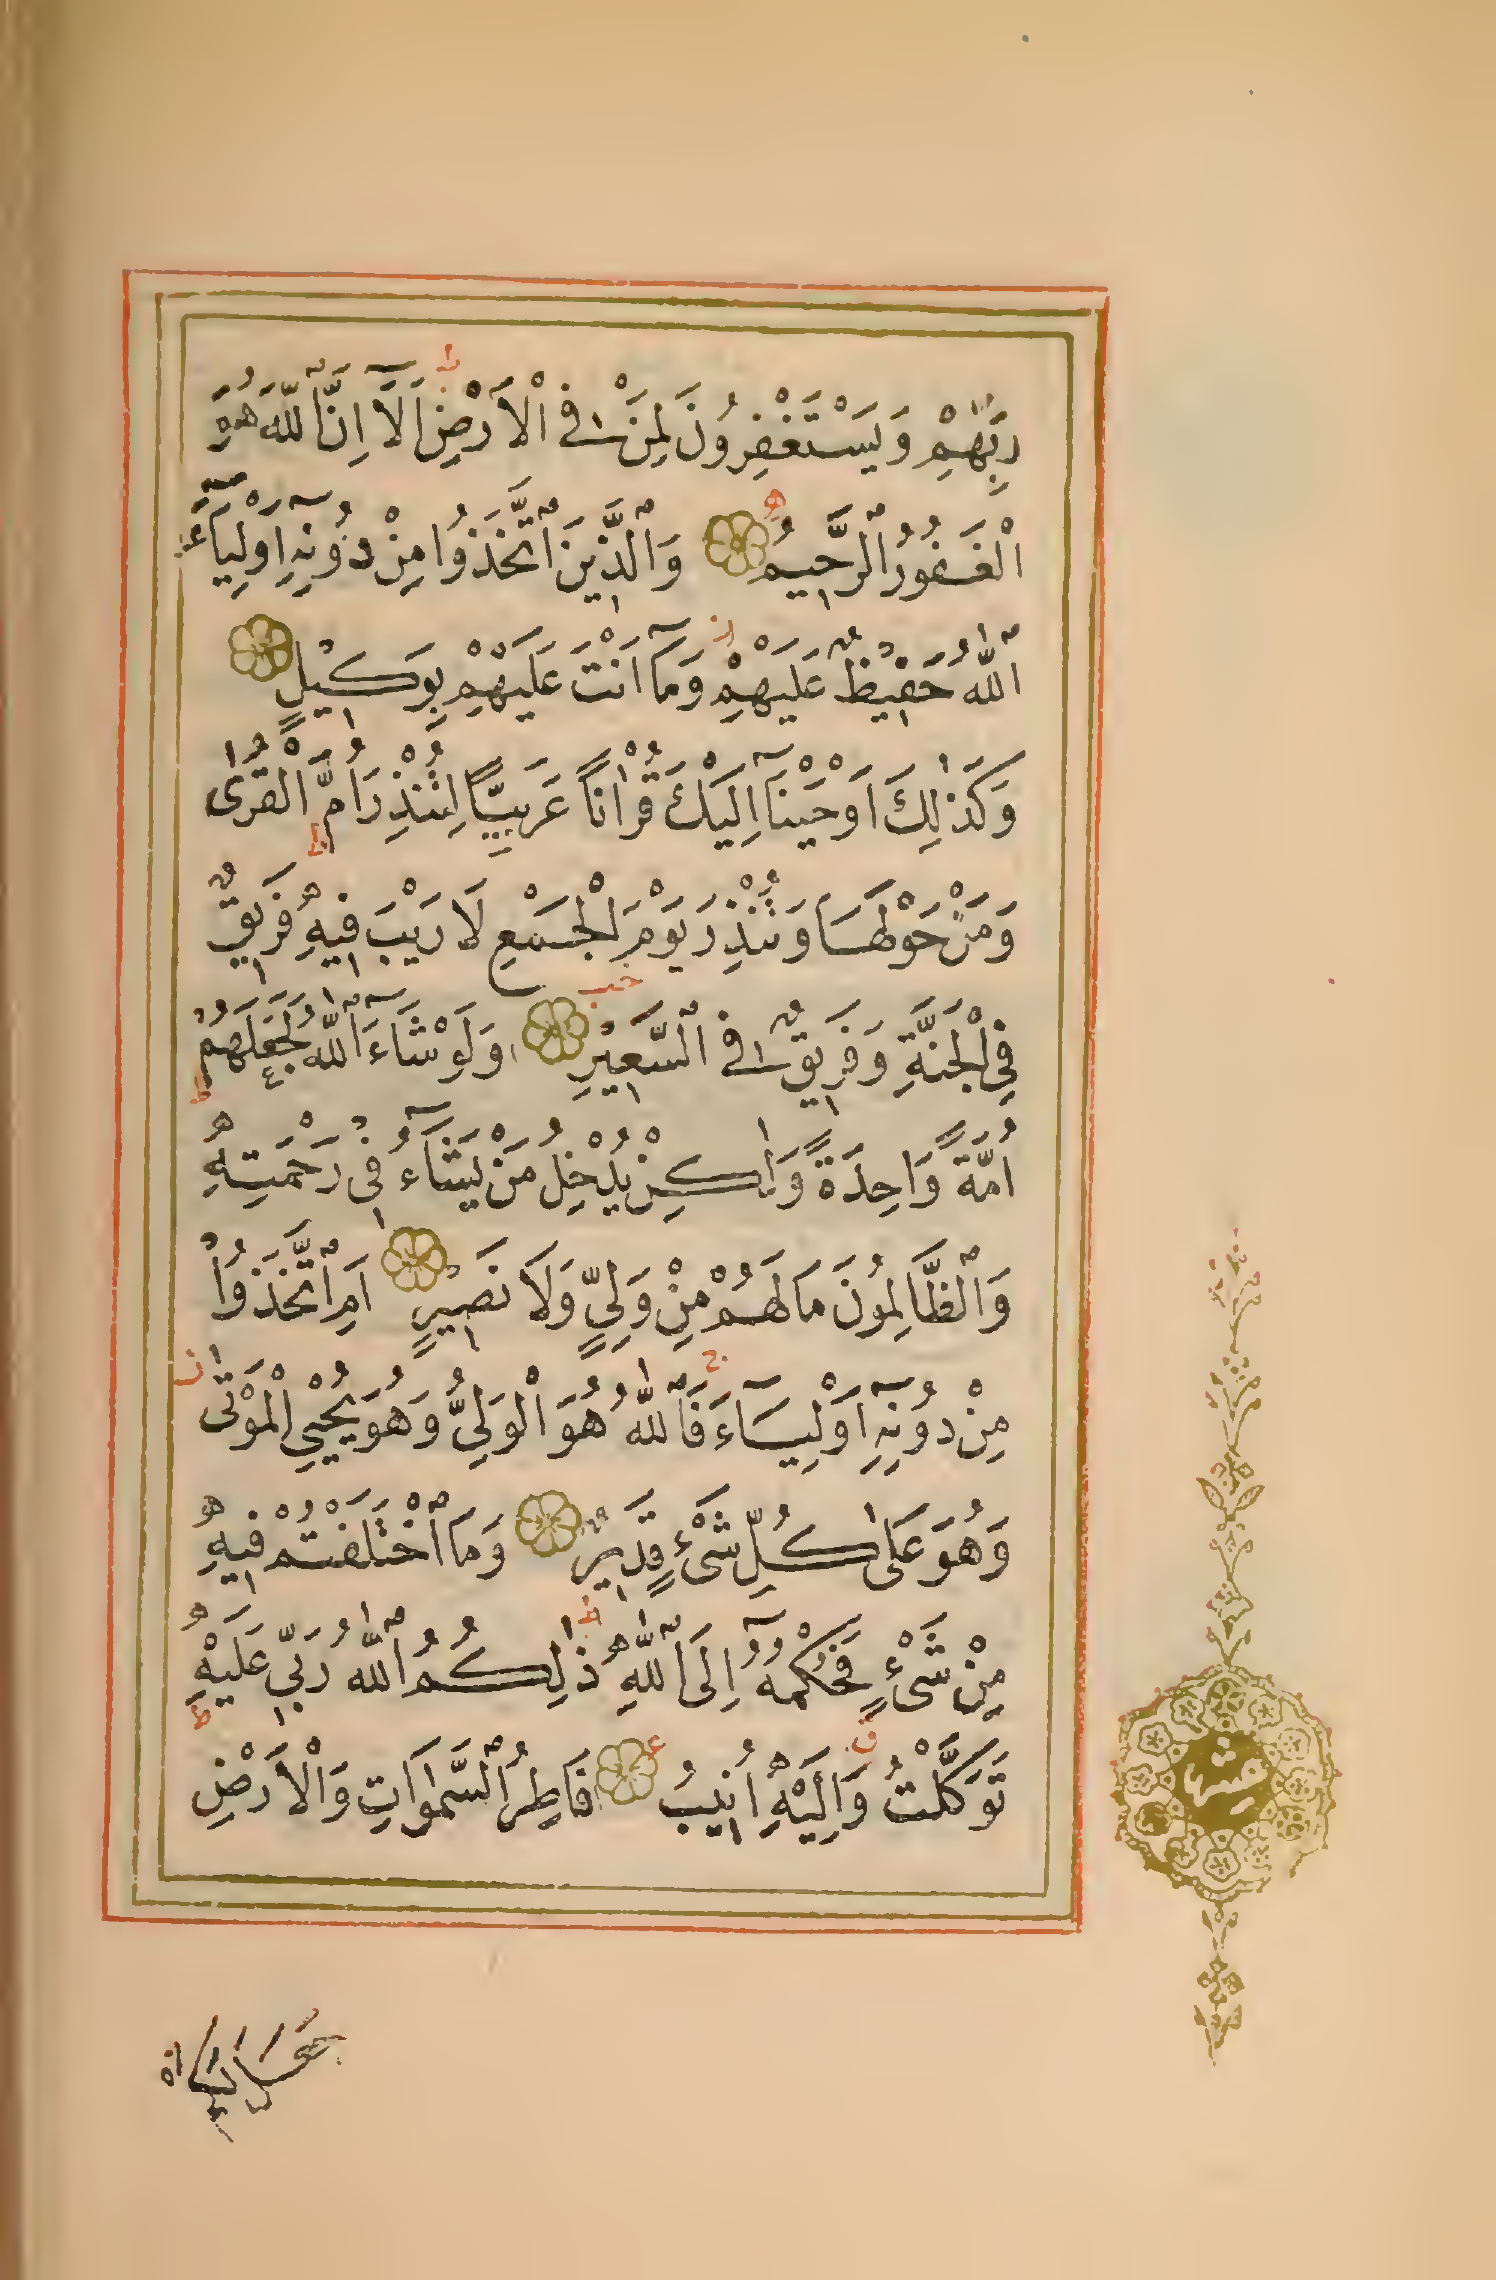 رَبِّهِمْ وَيَسْتَغْفِرُونَ لِمَنْ فِي الْاَرْضِ اَلَآ اِنَّ اللّٰهَ هُوَ
الْغَفُورُ الرَّحِيمُ وَالَّذِينَ اتَّخَذُوا مِنْ دُونِهِٓ اَوْلِيَآءَ
اللّٰهُ حَفِيظٌ عَلَيْهِمْ وَمَآ اَنْتَ عَلَيْهِمْ بِوَكِيلٍ
وَكَذٰلِكَ اَوْحَيْنَآ اِلَيْكَ قُرْاٰنًا عَرَبِيًّا لِتُنْذِرَ اُمَّ الْقُرٰى
وَمَنْ حَوْلَهَا وَتُنْذِرَ يَوْمَ الْجَمْعِ لَا رَيْبَ فِيهِ فَرِيقٌ
فِي الْجَنَّةِ وَفَرِيقٌ فِي السَّعِيرِ وَلَوْ شَآءَ اللّٰهُ لَجَعَلَهُمْ
اُمَّةً وَاحِدَةً وَلٰكِنْ يُدْخِلُ مَنْ يَشَآءُ فِي رَحْمَتِهِ
وَالظَّالِمُونَ مَا لَهُمْ مِنْ وَلِيٍّ وَلَا نَصِيرٍ اَمِ اتَّخَذُوا
مِنْ دُونِهِٓ اَوْلِيَآءَ فَاللّٰهُ هُوَ الْوَلِيُّ وَهُوَ يُحْيِي الْمَوْتٰى
وَهُوَ عَلٰى كُلِّ شَيْءٍ قَدِيرٌ وَمَا اخْتَلَفْتُمْ فِيهِ
مِنْ شَيْءٍ فَحُكْمُهُٓ اِلَى اللّٰهِ ذٰلِكُمُ اللّٰهُ رَبِّي عَلَيْهِ
تَوَكَّلْتُ وَاِلَيْهِ اُنِيبُ فَاطِرُ السَّمٰوَاتِ وَالْاَرْضِ